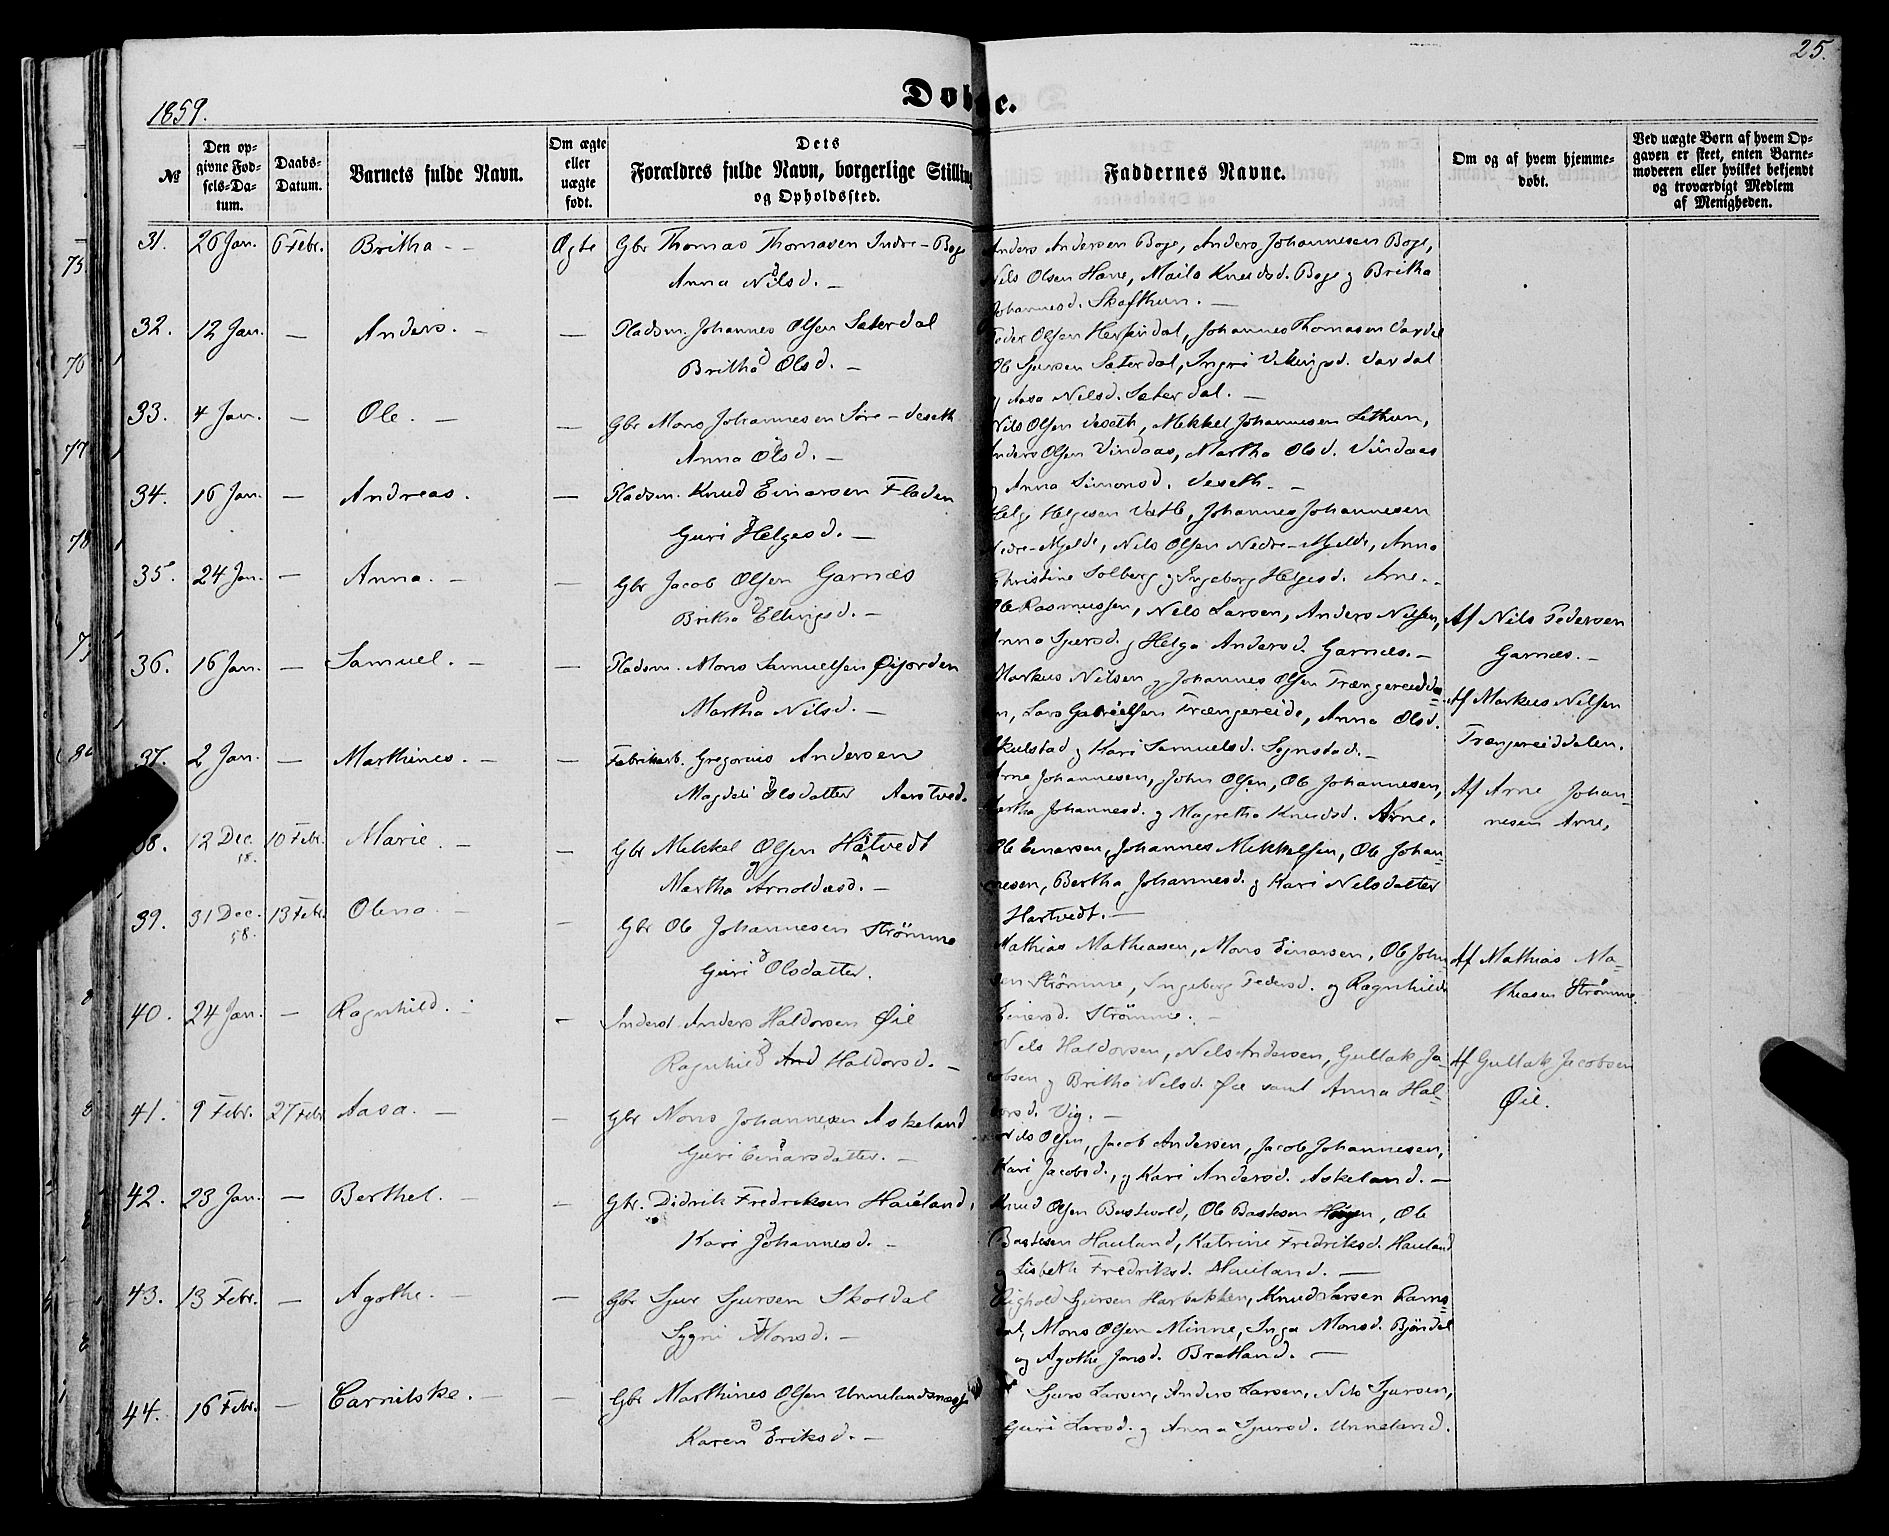 25.
1859.
Døbte.
№
Den op-
givne Fød-
sels-Da-
tum.
Daabs-
Datum.
Barnets fulde Navn.
Om ægte
eller
uægte
født.
Dets
Forældres fulde Navn, borgerlige Stilling
og Opholdssted.
Faddernes Navne.
Om og af hvem hjemme-
døbt.
Ved uægte Børn af hvem Op-
gaven er skeet, enten Barne-
moderen eller hvilket bekjendt
og troværdigt Medlem
af Menigheden.
31. 26 Jan. 6 Febr. Britha - - Ægte Gbr Thomas Thomasen Indre-Boge
Anna Nilsd. -
Anders Andersen Boge, Anders Johannesen Boge,
Nils Olsen Hane, Maila Knudsd. Boge og Britha
Johannesd. Skafthun. -
32. 12 Jan. - Anders. - - Pladsm. Johannes Olsen Sæterdal
Britha Olsd. -
Peder Olsen Herfindal, Johannes Thomasen Vardal
Ole Sjursen Sæterdal, Ingri Vikingsd. Vardal
og Aasa Nilsd. Sæterdal. -
33. 4 Jan. - Ole. - - Gbr Mons Johannesen Søre-Veseth
Anna Olsd. -
Nils Olsen Veseth, Mekkel Johannesen Lethun,
Anders Olsen Vindaas, Martha Olsd. Vindaas
og Anna Simonsd. Veseth. -
34. 16 Jan. - Andreas. - Pladsm. Knud Einarsen Fladen
Guri Helgesd. -
Helge Helgesen Vatle, Johannes Johannesen
Nedre-Mjelde, Nils Olsen Nedre-Mjelde, Anna
Christine Solberg og Ingeborg Helgesd. Arne. -
35. 24 Jan. - Anna. - - Gbr Jacob Olsen Garnæs
Britha Ellingsd. -
Ole Rasmussen, Nils Larsen, Anders Nilsen,
Anna Sjursd. og Helga Andersd. Garnæs. -
Af Nils Pedersen
Garnæs. -
36. 16 Jan. - Samuel. - - Pladsm. Mons Samuelsen Øijorden
Martha Nilsd. -
Markus Nilsen og Johannes Olsen Trængereidda=
len, Lars Gabrielsen Trængereide, Anna Olsd.
Skulstad og Kari Samuelsd. Songstad. -
Af Markus Nilsen
Trængereiddalen.
37. 2 Jan. - Marthines. - - Fabrikarb. Gregorius Andersen
Magdeli Olsdatter Aarstved.
Arne Johannesen, John Olsen, Ole Johannesen,
Martha Johannesd. og Magretha Knudsd. Arne.
Af Arne Johan-
nesen Arne,
38. 12 Dec. 58. 10 Febr. Marie. - - Gbr Mekkel Olsen Hatvedt
Martha Arnoldasd. -
Ole Einarsen, Johannes Mekkelsen, Ole Johan=
nesen, Bertha Johannesd. og Kari Nilsdatter
Hartvedt. -
39. 31 Dec. 58. 13 Febr. Olena - - Gbr Ole Johannesen Strömme
Guri Olsdatter.
Mathias Mathiasen, Mons Einarsen, Ole John
sen Strömme, Ingeborg Pedersd. og Ragnhilde
Einersd. Strömme. -
Af Mathias Ma-
thiasen Strömme.
40. 24 Jan. - Ragnhild. - - Inderst Anders Haldorsen Øie
Ragnhild And Haldorsd. -
Nils Haldorsen, Nils Andersen, Gullak Ja-
cobsen og Britha Nilsd. Øie samt Anna Hal-
dorsd. Vig. -
Af Gullak Jacobsen
Øie.
41. 9 Febr. 27 Febr. Aasa. - - Gbr Mons Johannesen Askeland
Guri Einarsdatter. -
Nils Olsen, Jacob Andersen, Jacob Johannesen,
Kari Jacobsd., og Kari Andersd. Askeland. -
42. 23 Jan. - Berthel. - - Gbr. Didrik Fredriksen Hauland,
Kari Johannesd. -
Knud Olsen Burkvold, Ole Bastesen Haugen, Ole
Bastesen Hauland, Katrine Fredriksd. Hauland
og Lisbeth Fredriksd. Hauland. -
43. 13 Febr. - Agathe. - - Gbr Sjur Sjursen Skoldal
Sygni Monsd. -
Sjursen Harbakken, Knud Larsen Rams=
dal, Mons Olsen Minne, Inga Monsd. Bjöndal
og Agothe Jansd. Bratland. -
44. 16 Febr. - Carnilske. - - Gbr Marthines Olsen Unnelandsnæsse
Karen Eriksd. -
Sjurs Larsen, Anders Larsen, Nils Sjursen,
Guri Larsd. og Anna Sjursd. Unneland.
75
76
77
78